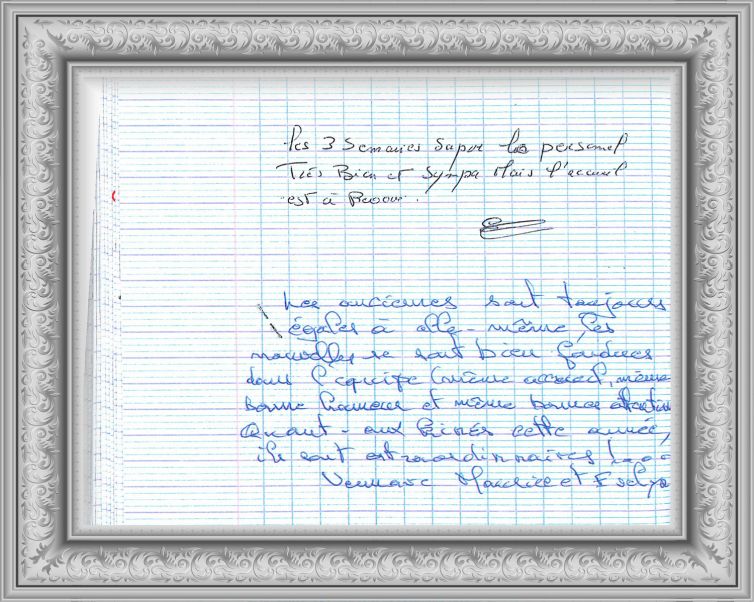 Les 3 Semaines Super le personel
Très Bien et Sympa Mais l'accueil
est à Revoir.
Les anciennes sont toujours
égales à elle-même, les
nouvelles se sont bien fondues
dans l'équipe (même accueil, même
bonne humeur et même bonnes attention
Quant-aux kinés cette année,
ils sont extraordinnaires !...
Maurice et